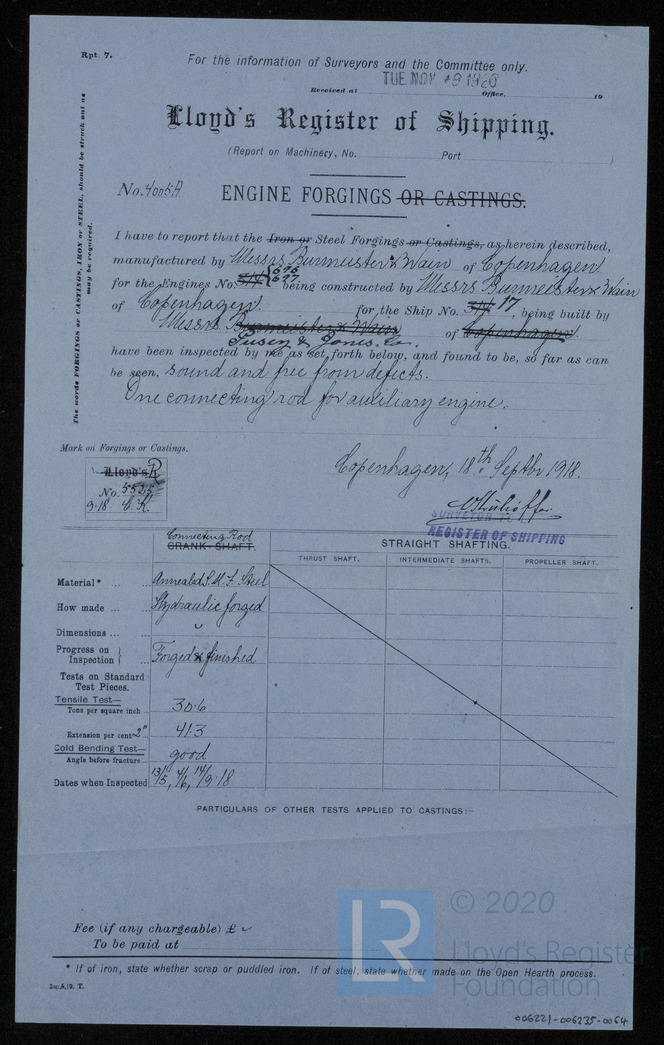 Rpt. 7.
For the information of Surveyors and the Committee only.
TUE. NOV 1920
Received at Office, 19
Lloyd's Register of Shipping.
(Report on Machinery, No. Port )
No. 4005A
ENGINE FORGINGS OR CASTINGS.
The words FORGINGS or CASTINGS, IRON or STEEL, should be struck out as
may be required.
I have to report that the Iron or Steel Forgings or Castings, as herein described,
manufactured by Messrs Burmeister & Wain of Copenhagen
for the Engines No. 696 697 being constructed by Messrs Burmeister & Wain
of Copenhagen for the Ship No. 17, being built by
Messrs Burmeister & Wain of Copenhagen
Pusey & Jones Co.
have been inspected by me as set forth below, and found to be, so far as can
be seen, sound and free from defects.
One connecting rod for auxiliary engine.
Mark on Forgings or Castings.
Copenhagen, 18th Septbr 1918.
Lloyd's R
No. 5525
9.18.
SURVEYOR TO
REGISTER OF SHIPPING
Connecting Rod
CRANK SHAFT.
STRAIGHT SHAFTING.
THRUST SHAFT. INTERMEDIATE SHAFTS. PROPELLER SHAFT.
Material* ... Annealed S.M.F. Steel
How made ... Hydraulic forged
Dimensions ...
Progress on
Inspection Forged & finished
Tests on Standard
Test Pieces.
Tensile Test—
Tons per square inch 30.6
Extension per cent 2" 41.3
Cold Bending Test—
Angle before fracture good
Dates when Inspected 13/5, 4/6, 14/9.18
PARTICULARS OF OTHER TESTS APPLIED TO CASTINGS:—
Fee (if any chargeable) £
To be paid at
* If of iron, state whether scrap or puddled iron. If of steel, state whether made on the Open Hearth process.
LR
© 2020
Lloyd's Register
Foundation
006221-006235-0064